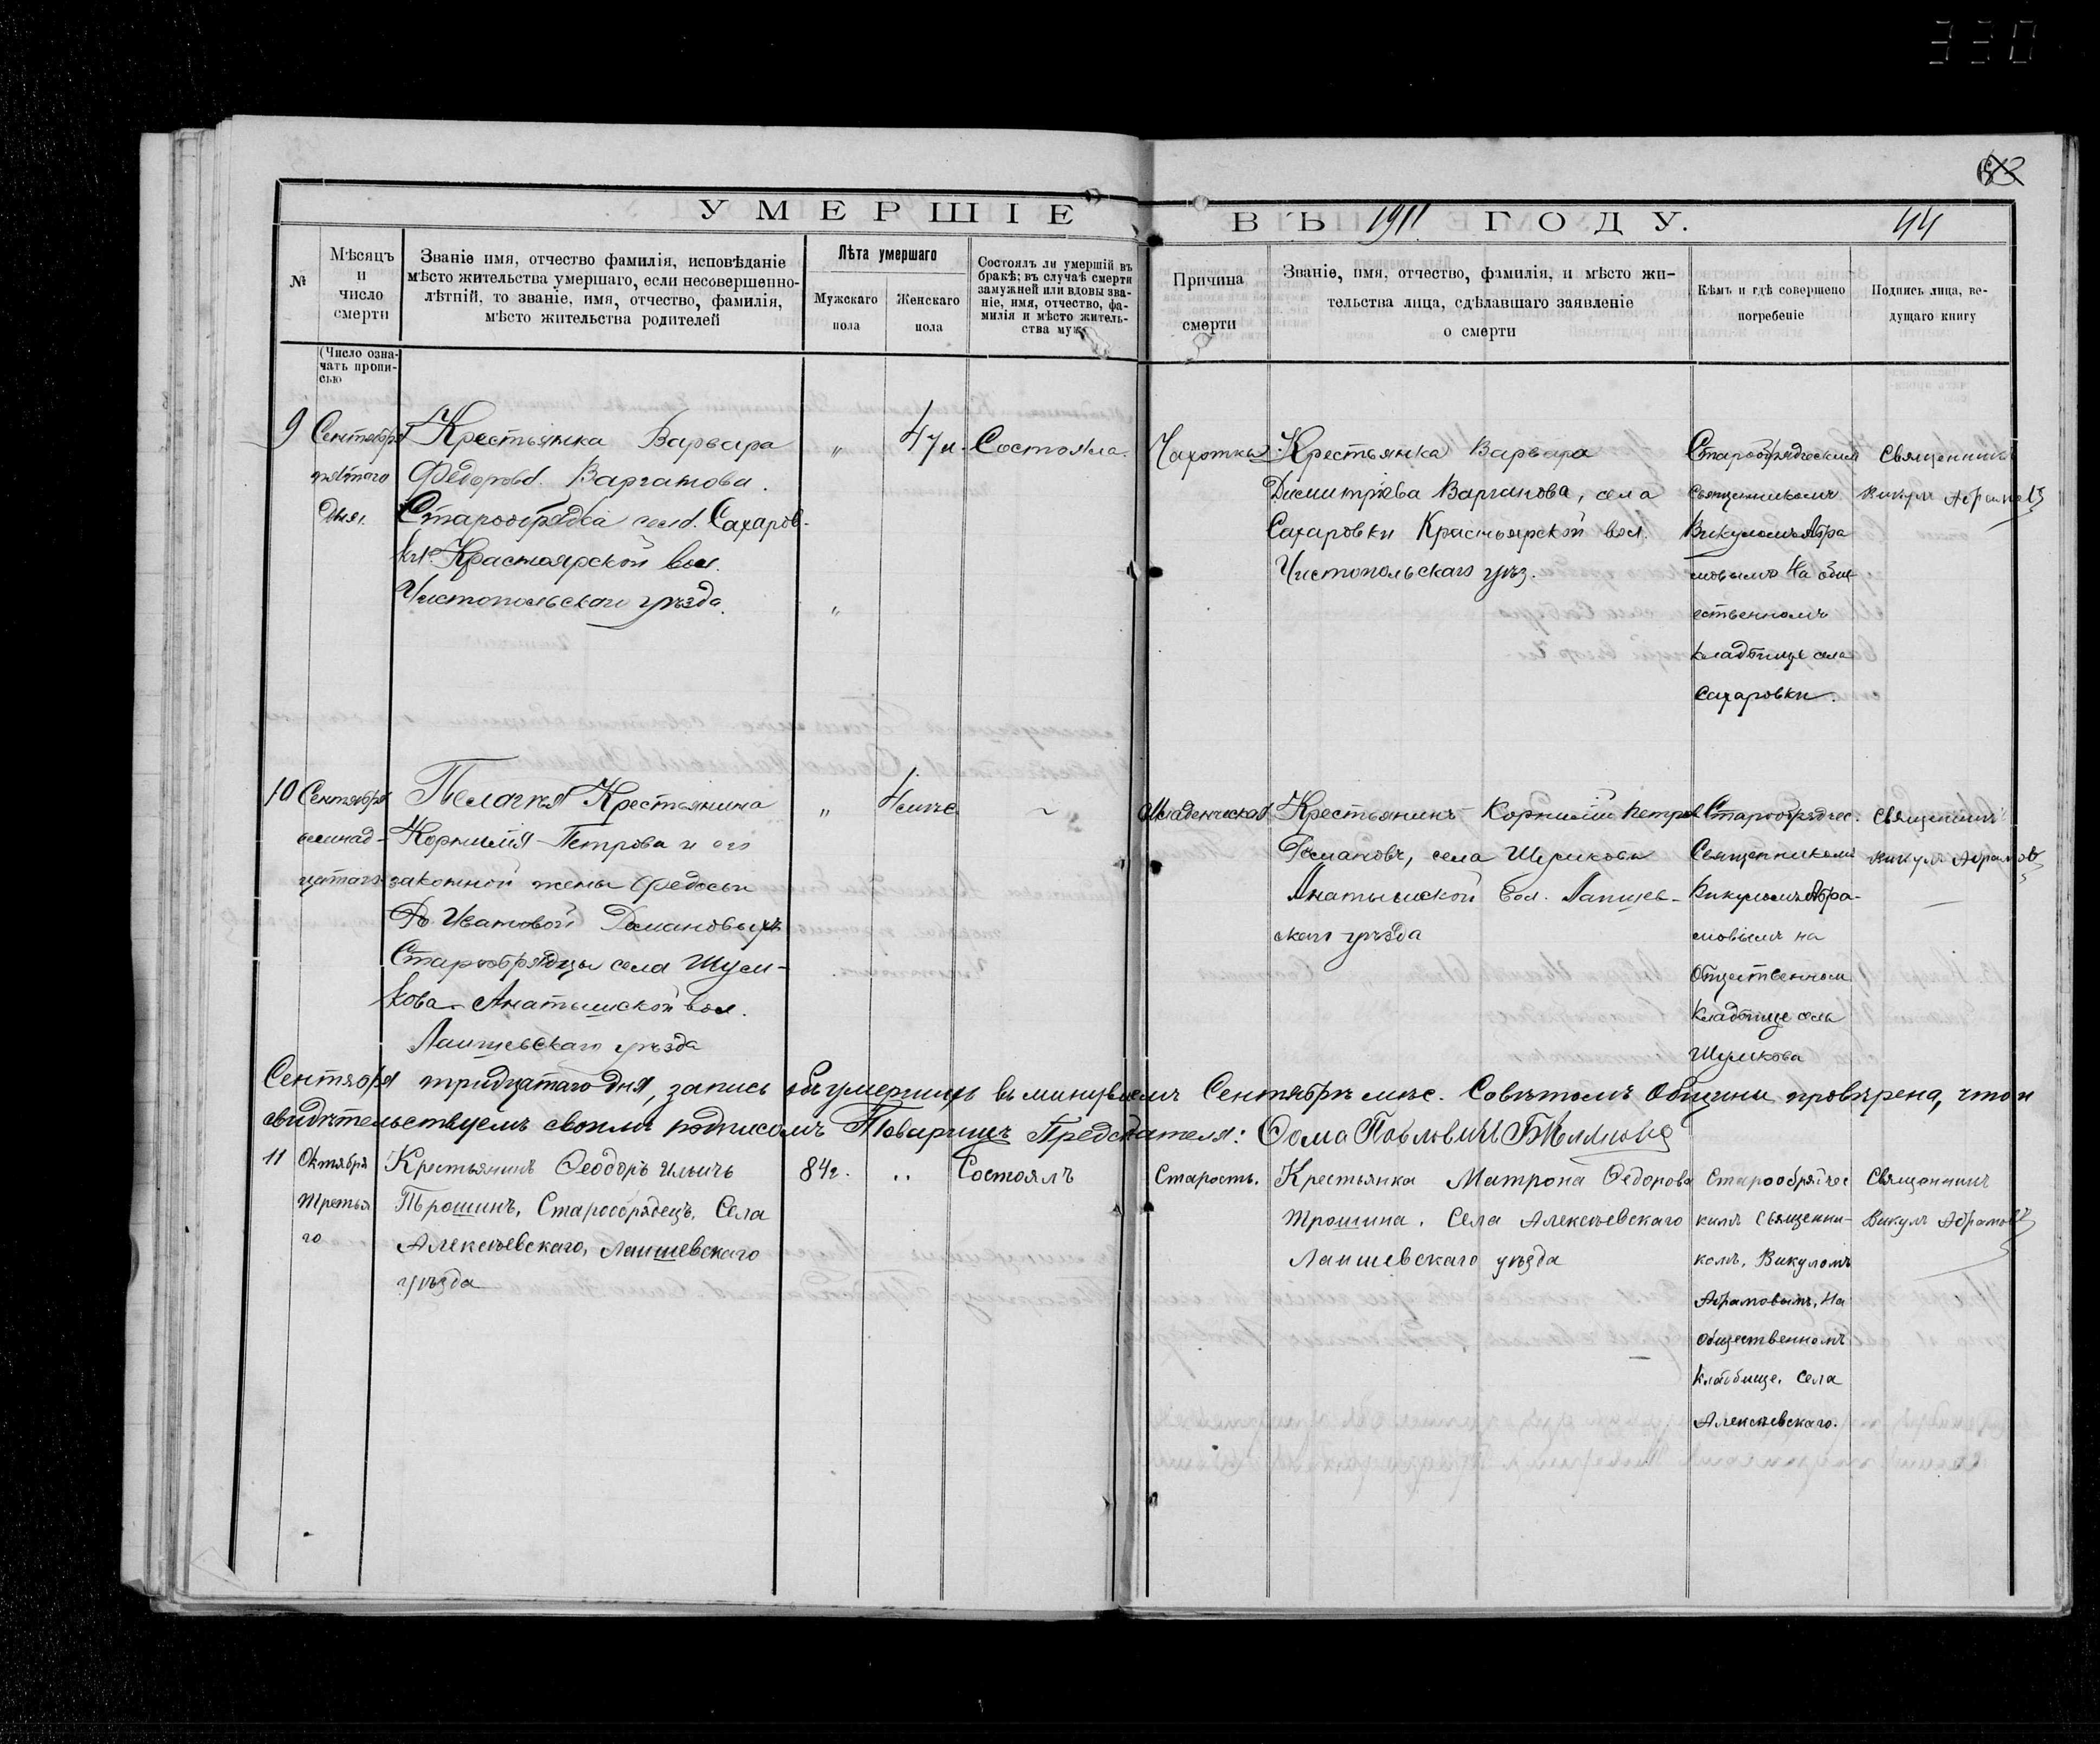 330
УМЕРШІЕ
ВЪ 1911 ГОДУ.
44
№
Мѣсяцъ
и
число
смерти
Званіе имя, отчество фамилія, исповѣданіе
мѣсто жительства умершаго, если несовершенно-
лѣтній, то званіе, имя, отчество, фамилія,
мѣсто жительства родителей
Лѣта умершаго
Мужскаго
пола
Женскаго
пола
Состоялъ ли умершій въ
бракѣ; въ случаѣ смерти
замужней или вдовы зва-
ніе, имя, отчество, фа-
милія и мѣсто житель-
ства мужа
Причина
смерти
Званіе, имя, отчество, фамилія, и мѣсто жи-
тельства лица, сдѣлавшаго заявленіе
о смерти
Кѣмъ и гдѣ совершено
погребеніе
Подпись лица, ве-
дущаго книгу
(Число озна-
чать пропи-
сью
9
Сентября
пятаго
Дня.
Крестьянка Варвара
Федорова Варганова.
Старообрядка села Сахаров-
ки Красноярской вол.
Чистопольскаго уѣзда.
"
"
Состояла.
Чахотка
Крестьянка Варвара
Димитріева Варганова, села
Сахаровки Красноярской вол.
Чистопольскаго уѣз.
Старообрядческим
священникомъ
Викуломъ Абра
мовымъ На общ
ественномъ
кладбище села
Сахаровки.
Священникъ
Викулъ Абрамовъ
10
Сентября
цатаго
Пелагея Крестьянина
Корнилія Петрова и его
законной жены Федосьи
Ивановой Романовыхъ
Старообрядцы села Шуми-
кова Анатышской вол.
Лаишевскаго уѣзда
"
4 мѣс.
~
Младенческая
Крестьянинъ Корнилій Петров
Романовъ, села Шумикова
Анатышской вол. Лаишев-
скаго уѣзда
Старообрядчес.
Священникомъ
Викуломъ Абра-
мовымъ на
Общественном
Кладбище села
Шумикова
Священникъ
Викулъ Абрамовъ
Сентября тридцатаго дня, запись объ умершихъ въ минувшемъ Сентябрѣ мѣс. Совѣтомъ Общины провѣрена, что и
свидѣтельствуемъ своимъ подписомъ Товарищъ Председателя: Ѳома Павловичъ
11
Октября
Третья
го
Крестьянинъ Ѳеодоръ Ильичъ
Трошинъ, Старообрядецъ, Села
Алексѣевскаго, Лаишевскаго
уѣзда
84 г.
"
Состоялъ
Старость.
Крестьянка Матрона Ѳедорова
Трошина. Села Алексѣевскаго
Лаишевскаго уѣзда
Старообрядчес
кимъ Священни-
комъ, Викуломъ
Абрамовымъ, На
общественномъ
кладбище, Села
Алексѣевскаго.
Священникъ
Викулъ Абрамовъ